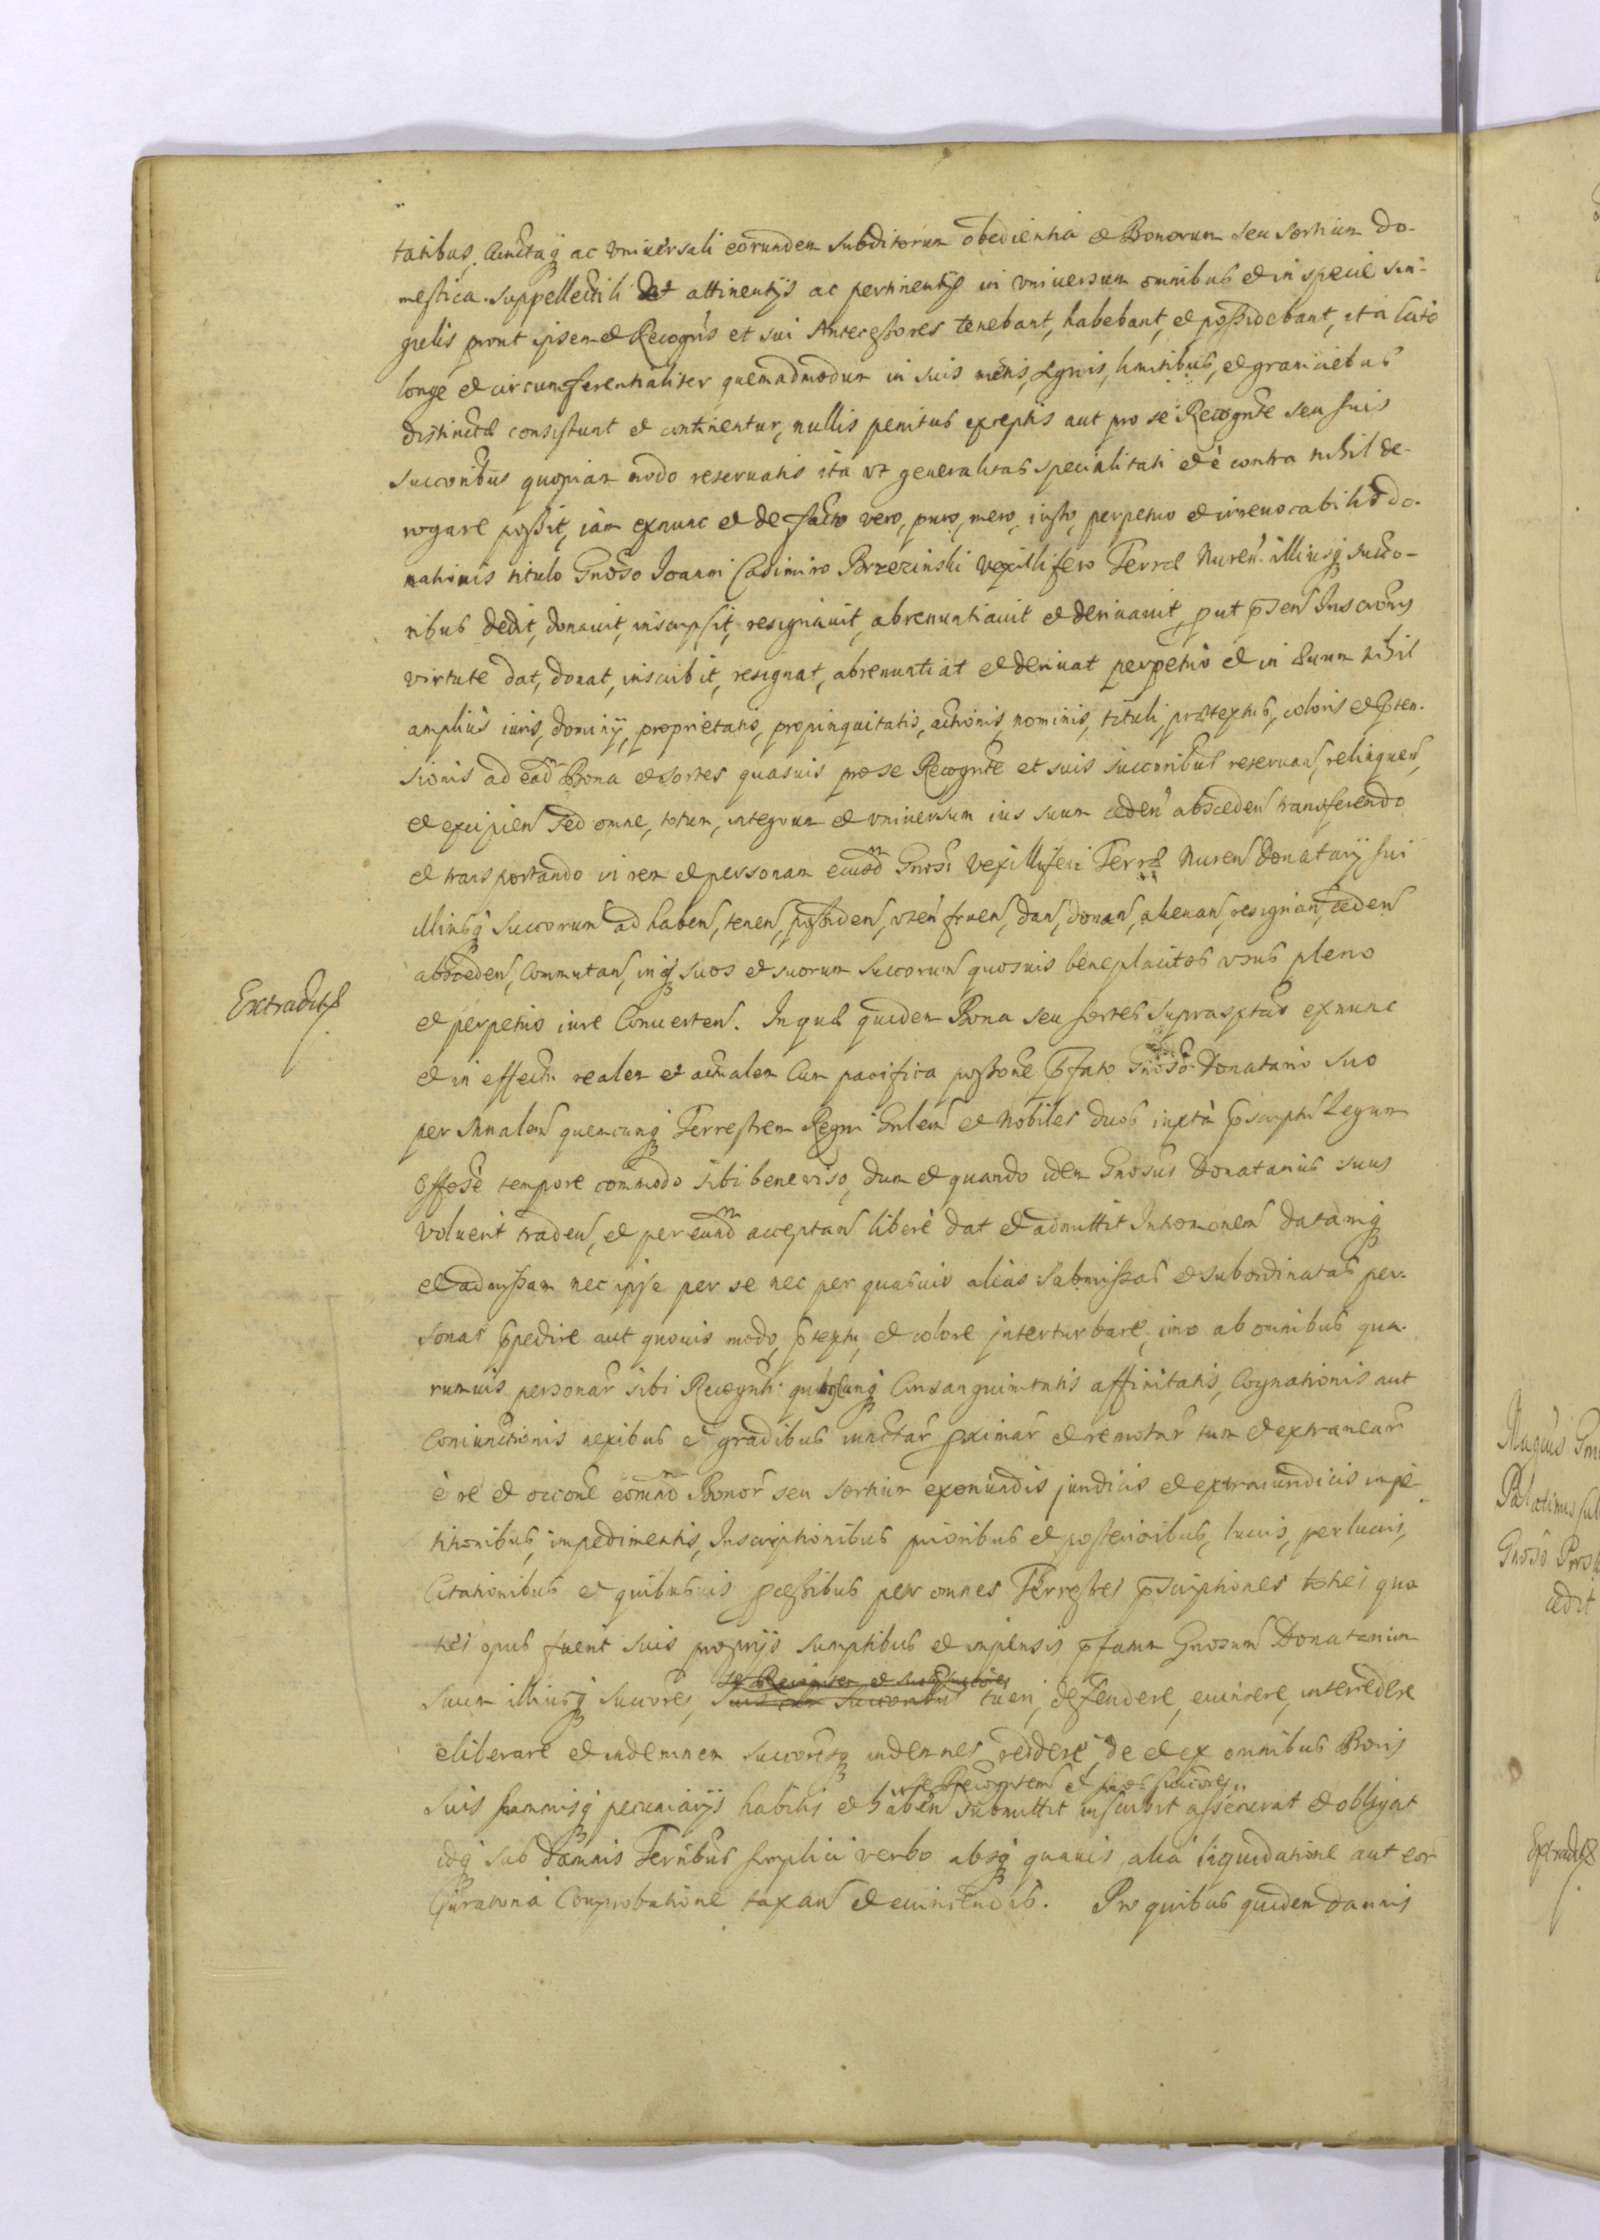 tatibus, Cunctaq ac vniuersali eorundem subditorum obedientia et Bonorum seu sortium do-
mestica suppellectili et attinentijs ac pertinentijs in vniuersum omnibus et in specie sin-
gulis, prout ipsemet Recogns et sui Antecessores tenebant, habebant, et possidebant, ita late
longe et circumferentialiter quemadmodum in suis metis, signis, limitibus, et graniciebus
distincta consistunt et continentur, nullis penitus exceptis aut pro se Recognte seu suis
succoribus quopiam modo reseruatis ita vt generalitas specialitati et è contra nihil de-
rogare possit, iam exnunc et de facto vero, puro, mero, iusto, perpetuo et irreuocabilis do-
nationis titulo Gnoso Joanni Casimiro Brzezinski vexillifero Terræ Nuren. illiusq succo-
ribus dedit, donauit, inscripsit, resignauit, abrenuntiauit et deriuauit, put psen Inscronis
virtute dat, donat, inscribit, resignat, abrenuntiat et deriuat perpetuo et in æuum nihil
amplius iuris, dominij, proprietatis, propinquitatis, actionis, nominis, tituli, prætextus, coloris et pten-
sionis ad ead Bona et sortes quasuis pro se Recognte et suis succoribus reseruan, relinquen,
et excipien sed omne, totum, integrum et vniuersum ius suum ceden absceden transferendo
et transportando in rem et personam eiusd Gnosi Vexilliferi Terræ Nuren Donatarij sui
illiusq succorum ad haben, tenen, possiden, vten fruen, dan, donan, alienan, resignan, ceden
absceden, Commutan, inq suos et suorum succorum quosuis beneplacitos vsus pleno
Extradits
et perpetuo iure Conuerten. In quæ quidem Bona seu sortes suprasptas exnunc
et in effectu realem et actualem Cum pacifica possone pfato Gnoso Donatario suo
per Mnalem quemcunq Terrestrem Regni Gnlem et Nobiles duos iuxtà pscriptu Legum
Offose tempore commodo sibi beneviso, dum et quando idem Gnosus Donatarius suus
voluerit traden, et per eund acceptan liberè dat et admittit Intromonem datamq
et admissam nec ipse per se nec per quasuis alias submissas et subordinatas per-
sonas ppedire aut quouis modo, ptextu, et colore interturbare, imo ab omnibus qua-
rumuis personar sibi Recognti quibscunq Consanguinitatis affinitatis, Cognationis aut
Coniunctionis nexibus et gradibus iunctar pximar et remotar tum et extranear
è re et occone eorund Bonor seu sortium exoriundis juridicis et extraiuridicis impe-
titionibus, impedimentis, Inscriptionibus prioribus et posterioribus, lucris, perlucris,
Citationibus et quibusuis pcessibus per omnes Terrestres pscriptiones toties quo
ties opus fuerit suis proprijs sumptibus et impensis pfatum Gnosum Donatarium
suum illiusq succores, tueri, defendere, euincere, intercedere
eliberare et indemnem succoresq indemnes reddere, de et ex omnibus Bonis
se Recognten et suos succores
suis summisq pecuniarijs habitis et haben submittit inscribit asseuerat et obligat
idq sub damnis Ternbus simplici verbo absq quauis alia liquidatione aut cor
Juratoria Comprobatione taxan et euincendis. Pro quibus quidem damnis